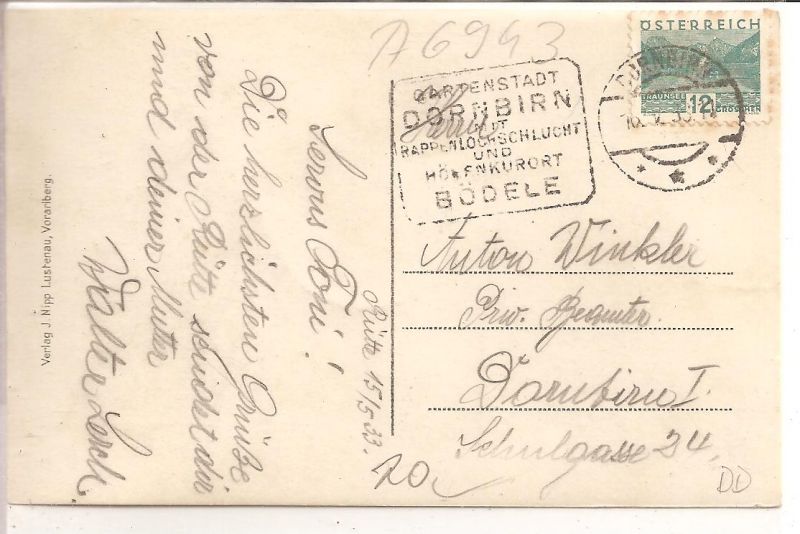 A6943
ÖSTERREICH
TRAUNSEE 12 GROSCHEN
DORNBIRN
GARTENSTADT
DORNBIRN
MIT
RAPPENLOCHSCHLUCHT
UND
HÖHENKURORT
BÖDELE
Herrn
Anton Winkler
Priv. Beamter.
Dornbirn I.
Schulgasse 24.
Rütte 15/5 33.
Servus Toni!
Die herzlichsten Grüße
von der Rütte sendet dir
und deiner Mutter
Walter
Verlag J. Nipp Lustenau, Vorarlberg.
DD